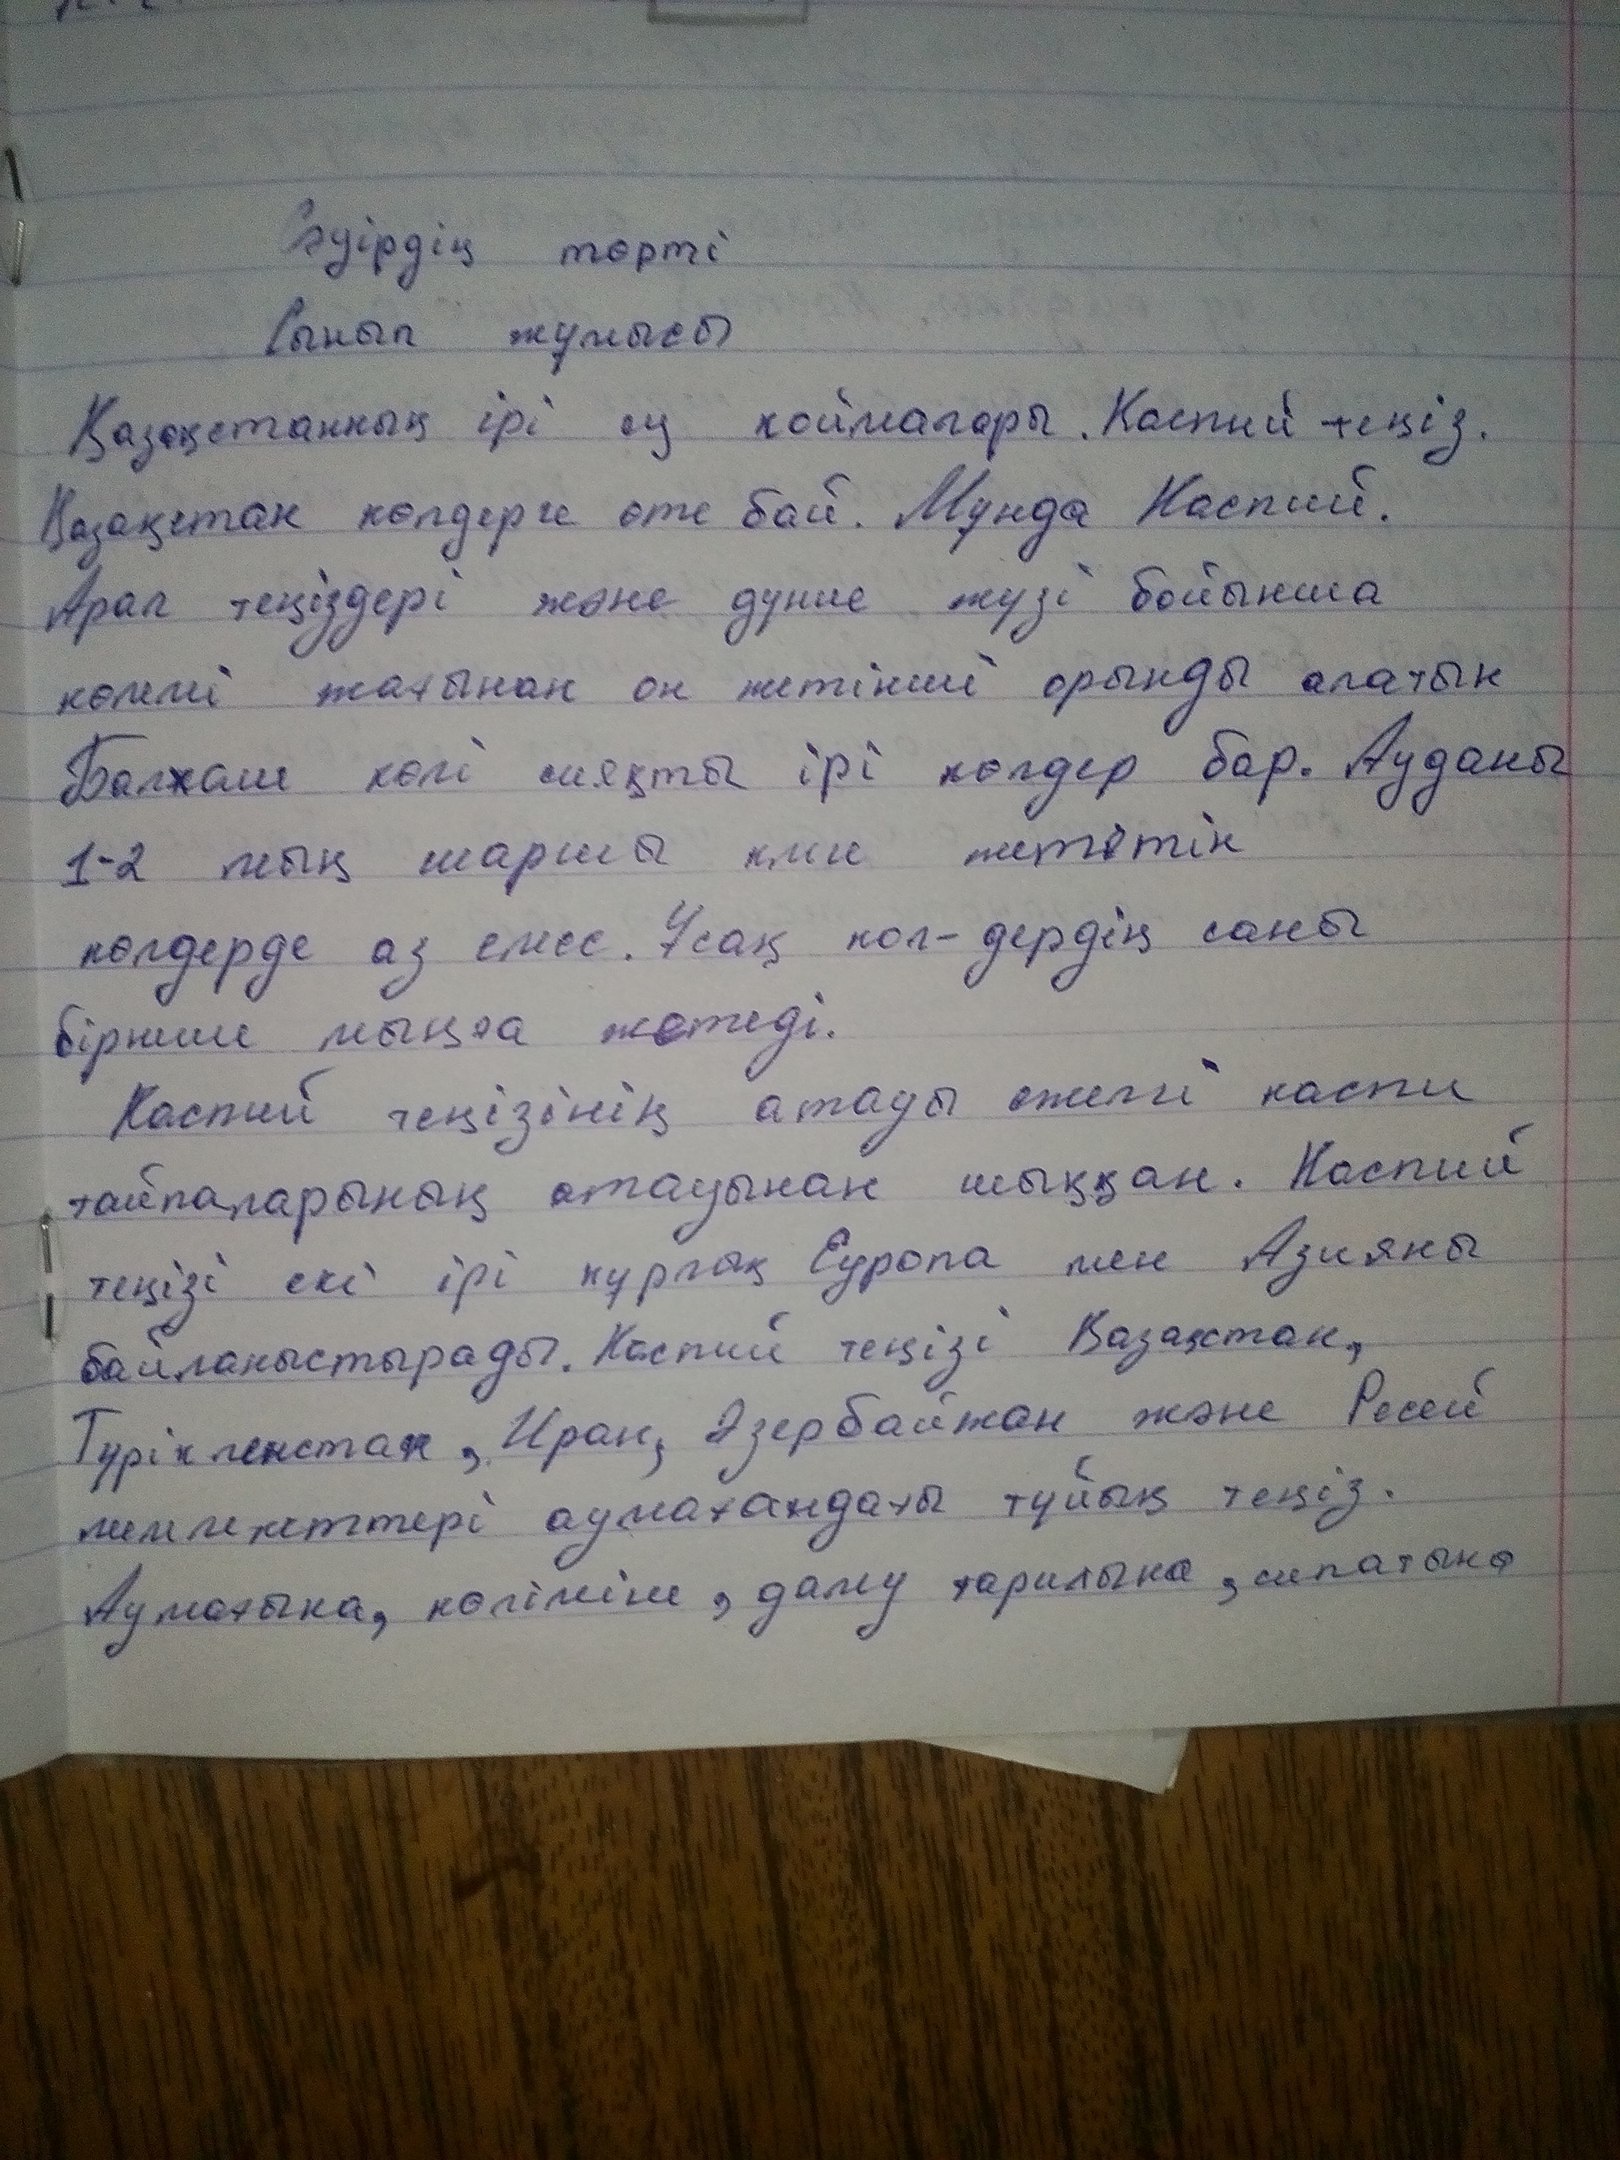 Сәуірдің төрті
Сынып жұмысы
Қазақстанның ірі су қоймалары. Каспий теңіз.
Қазақстан көлдерге өте бай. Мұнда Каспий.
Арал теңіздері және дүние жузі бойынша
көлемі жағынан он жетінші орынды алатын
Балхаш көлі сияқты ірі көлдер бар. Ауданы
1-2 мың шаршы км-ге жететін
көлдерде аз емес. Ұсақ көл-дердің саны
бірнеше мыңға жетеді.
Каспий теңізінің атауы ежелгі каспи
тайпаларының атауынан шыққан. Каспий
теңізі екі ірі құрлық Еуропа мен Азияны
байланыстырады. Каспий теңізі Қазақстан,
Түрікменстан, Иран, Әзербайжан және Ресей
мемлекеттері аумағандағы тұйық теңіз.
Аумағына, көліміне, даму тарихына, сипатына